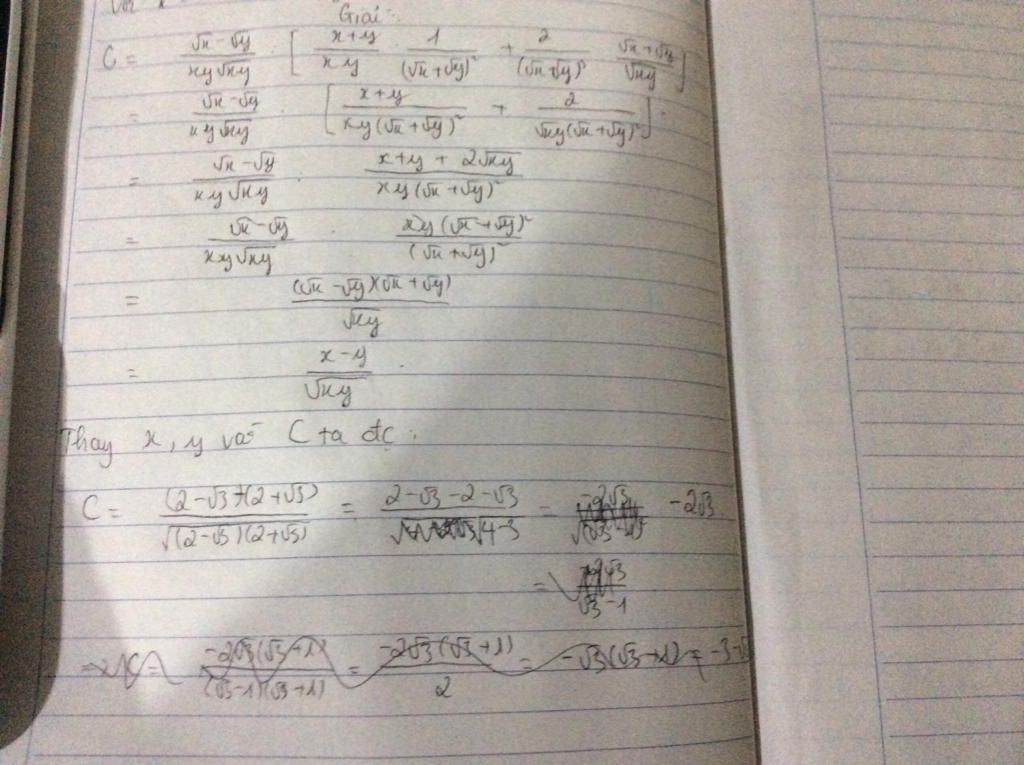 Giải:
C = \frac{\sqrt{x}-\sqrt{y}}{xy\sqrt{xy}} : [ \frac{x+y}{xy} \cdot \frac{1}{(\sqrt{x}+\sqrt{y})^2} + \frac{2}{(\sqrt{x}+\sqrt{y})^3} \cdot \frac{\sqrt{x}+\sqrt{y}}{\sqrt{xy}} ]
= \frac{\sqrt{x}-\sqrt{y}}{xy\sqrt{xy}} : [ \frac{x+y}{xy(\sqrt{x}+\sqrt{y})^2} + \frac{2}{\sqrt{xy}(\sqrt{x}+\sqrt{y})^2} ].
= \frac{\sqrt{x}-\sqrt{y}}{xy\sqrt{xy}} : \frac{x+y+2\sqrt{xy}}{xy(\sqrt{x}+\sqrt{y})^2}
= \frac{\sqrt{x}-\sqrt{y}}{xy\sqrt{xy}} \cdot \frac{xy(\sqrt{x}+\sqrt{y})^2}{(\sqrt{x}+\sqrt{y})^2}
= \frac{(\sqrt{x}-\sqrt{y})(\sqrt{x}+\sqrt{y})}{\sqrt{xy}}
= \frac{x-y}{\sqrt{xy}}.
Thay x, y vào C ta đc:
C = \frac{(2-\sqrt{3})-(2+\sqrt{3})}{\sqrt{(2-\sqrt{3})(2+\sqrt{3})}} = \frac{2-\sqrt{3}-2-\sqrt{3}}{\sqrt{4-3}} = -2\sqrt{3}